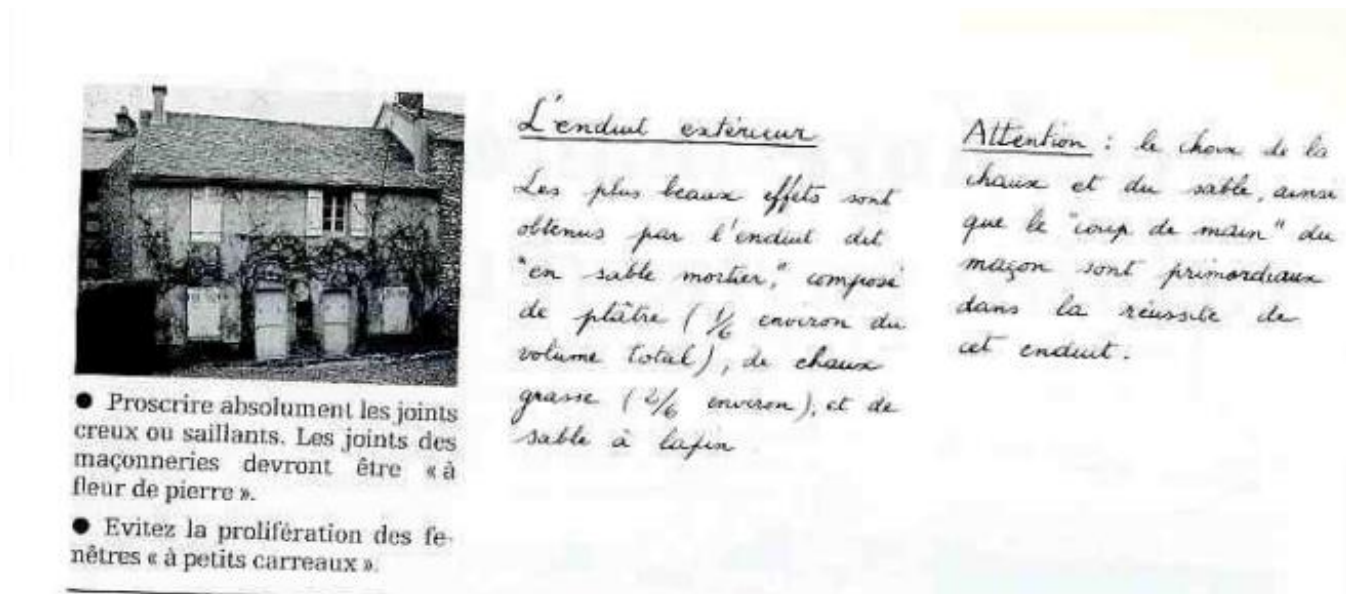 ● Proscrire absolument les joints
creux ou saillants. Les joints des
maçonneries devront être « à
fleur de pierre ».
● Evitez la prolifération des fe-
nêtres « à petits carreaux ».
L'enduit extérieur
Les plus beaux effets sont
obtenus par l'enduit dit
"en sable mortier", composé
de plâtre (1/6 environ du
volume total), de chaux
grasse (2/6 environ), et de
sable à lapin
Attention : le choix de la
chaux et du sable, ainsi
que le "coup de main" du
maçon sont primordiaux
dans la réussite de
cet enduit.